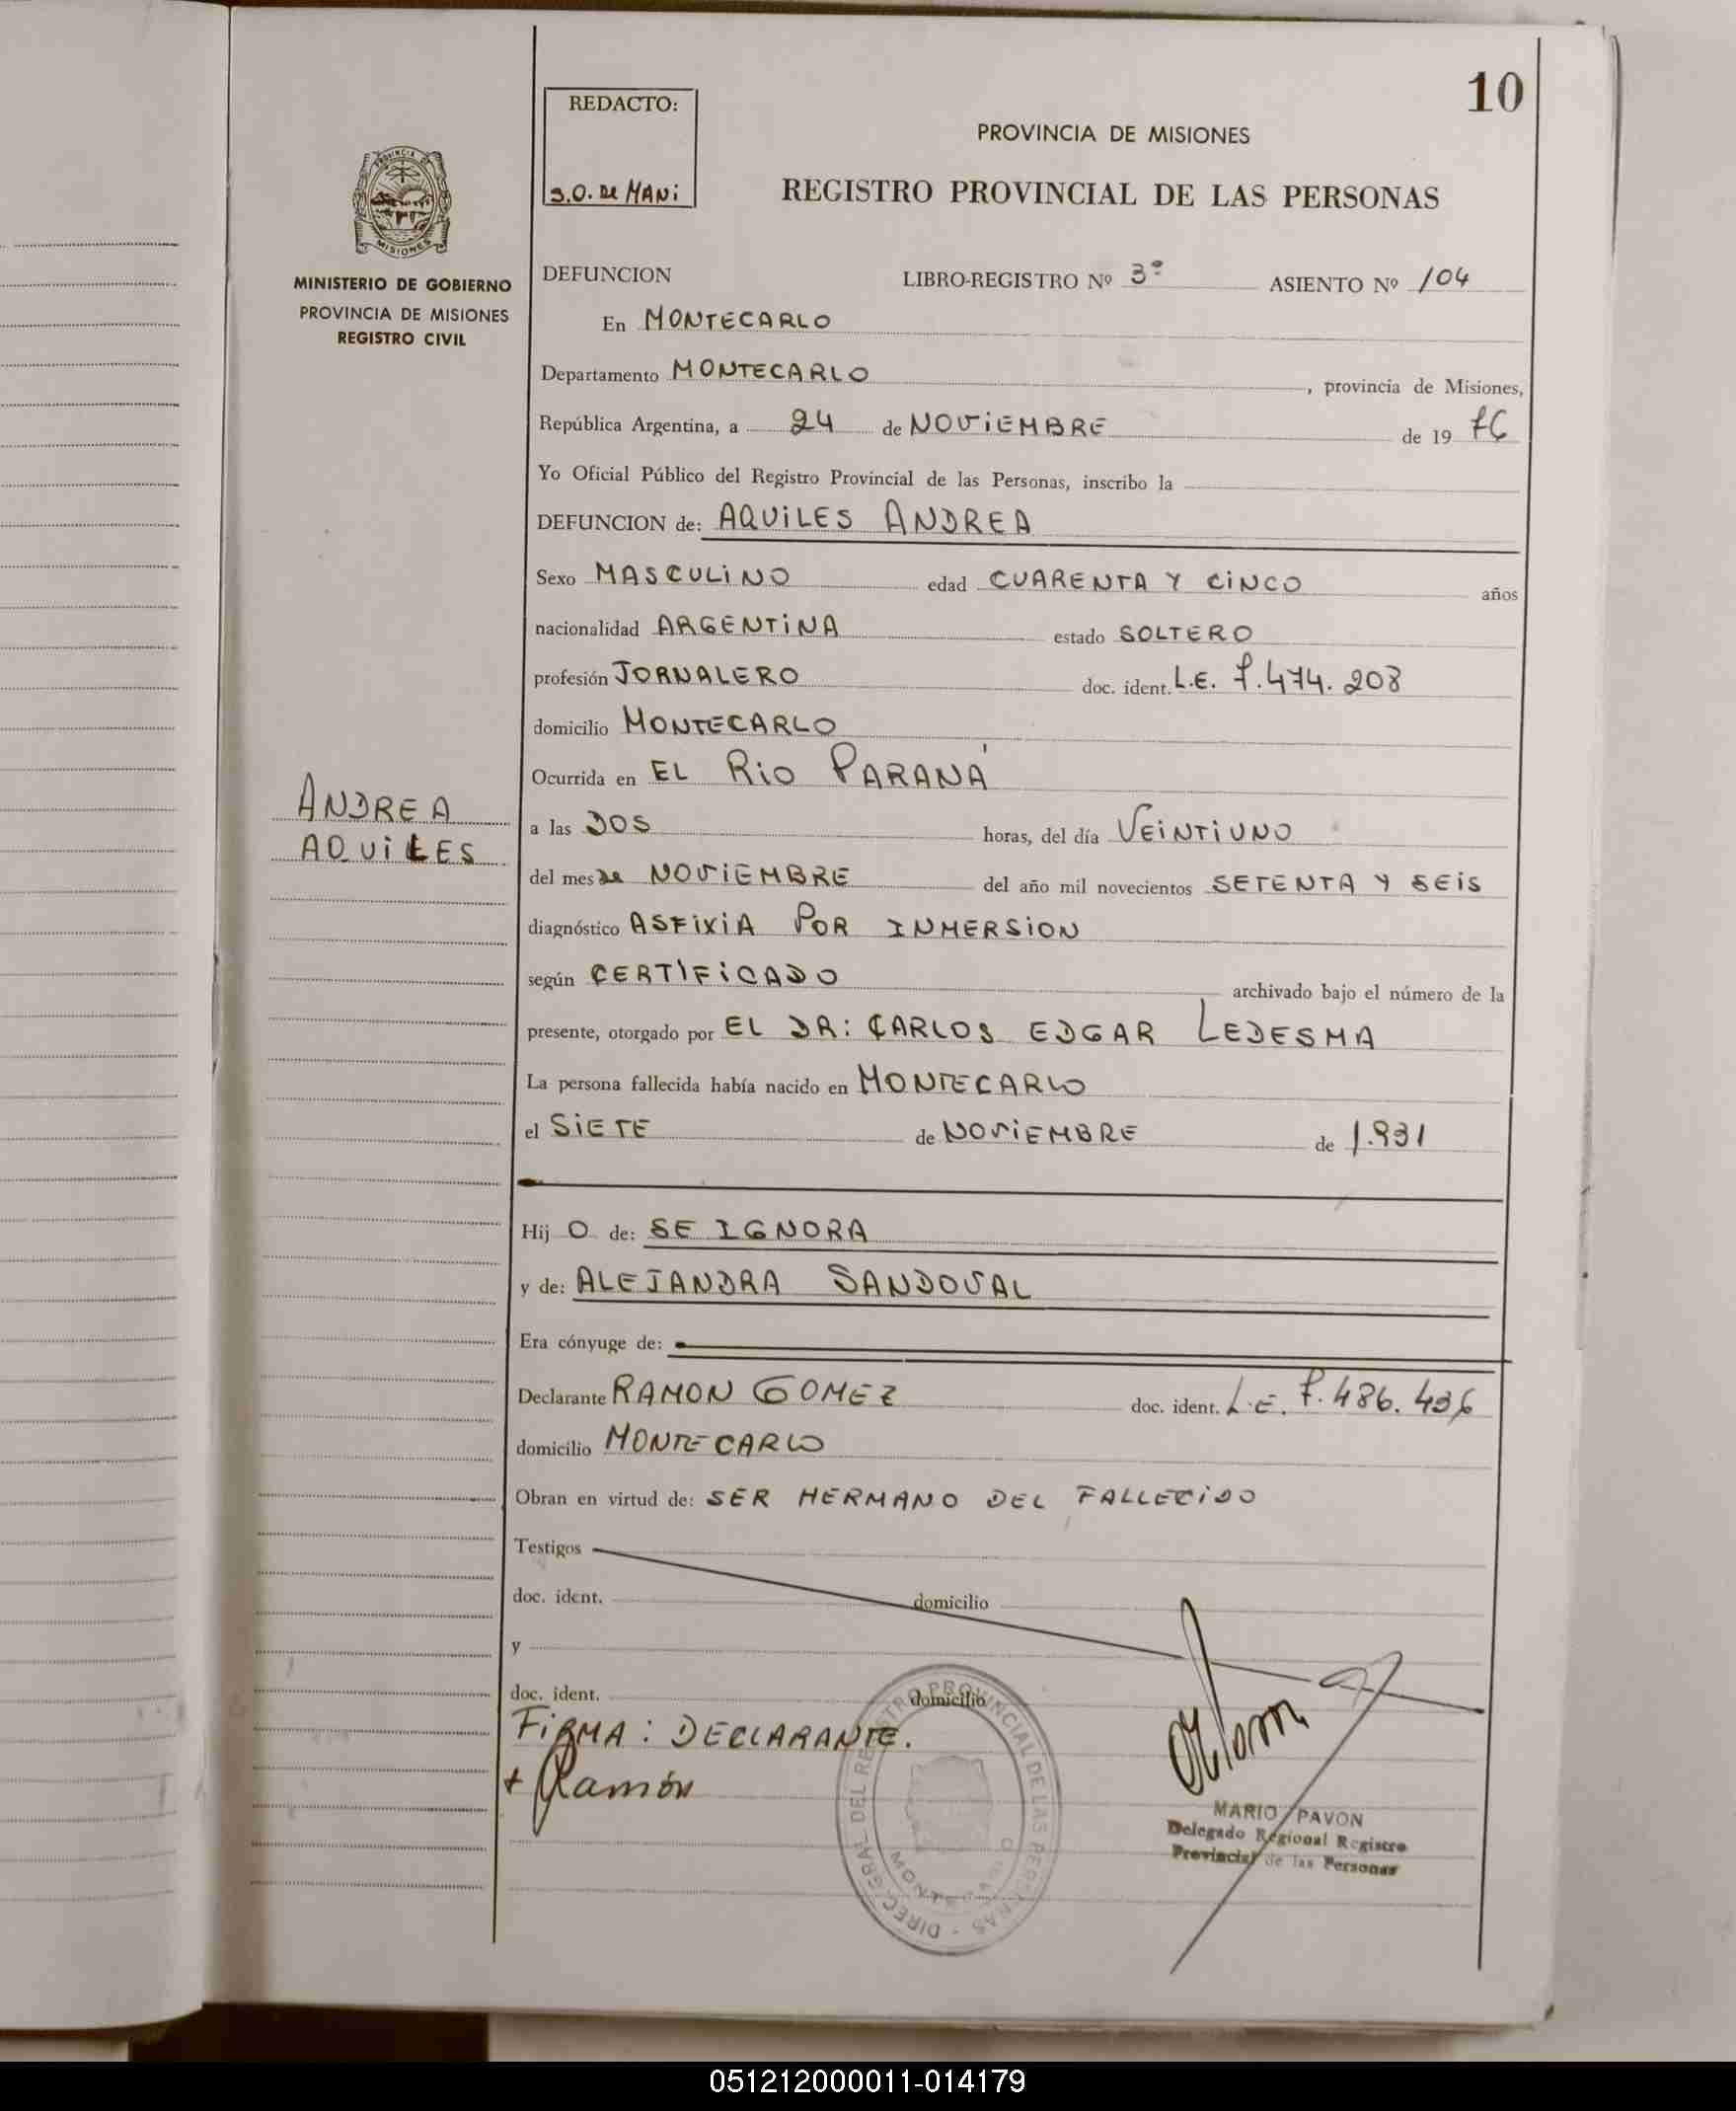 10
REDACTO:
S.O. DE MANI
PROVINCIA DE MISIONES
REGISTRO PROVINCIAL DE LAS PERSONAS
PROVINCIA DE
MISIONES
MINISTERIO DE GOBIERNO
PROVINCIA DE MISIONES
REGISTRO CIVIL
DEFUNCION LIBRO-REGISTRO Nº 3º ASIENTO Nº 104
En MONTECARLO
Departamento MONTECARLO, provincia de Misiones,
República Argentina, a 24 de NOVIEMBRE de 19 76
Yo Oficial Público del Registro Provincial de las Personas, inscribo la
DEFUNCION de: AQUILES ANDREA
Sexo MASCULINO edad CUARENTA Y CINCO años
nacionalidad ARGENTINA estado SOLTERO
profesión JORNALERO doc. ident. L.E. 7.474.208
domicilio MONTECARLO
Ocurrida en EL RIO PARANÁ
ANDREA
AQUILES
a las DOS horas, del día VEINTIUNO
del mes de NOVIEMBRE del año mil novecientos SETENTA Y SEIS
diagnóstico ASFIXIA POR INMERSION
según CERTIFICADO archivado bajo el número de la
presente, otorgado por EL DR: CARLOS EDGAR LEDESMA
La persona fallecida había nacido en MONTECARLO
el SIETE de NOVIEMBRE de 1.931
Hij O de: SE IGNORA
y de: ALEJANDRA SANDOVAL
Era cónyuge de:
Declarante RAMON GOMEZ doc. ident. L.E. 7.486.436
domicilio MONTECARLO
Obran en virtud de: SER HERMANO DEL FALLECIDO
Testigos
doc. ident. domicilio
y
doc. ident. domicilio
FIRMA: DECLARANTE.
+ Ramón
DIREC. GRAL DEL REGISTRO PROVINCIAL DE LAS PERSONAS -
MONTECARLO
MARIO PAVON
Delegado Regional Registro
Provincial de las Personas
051212000011-014179